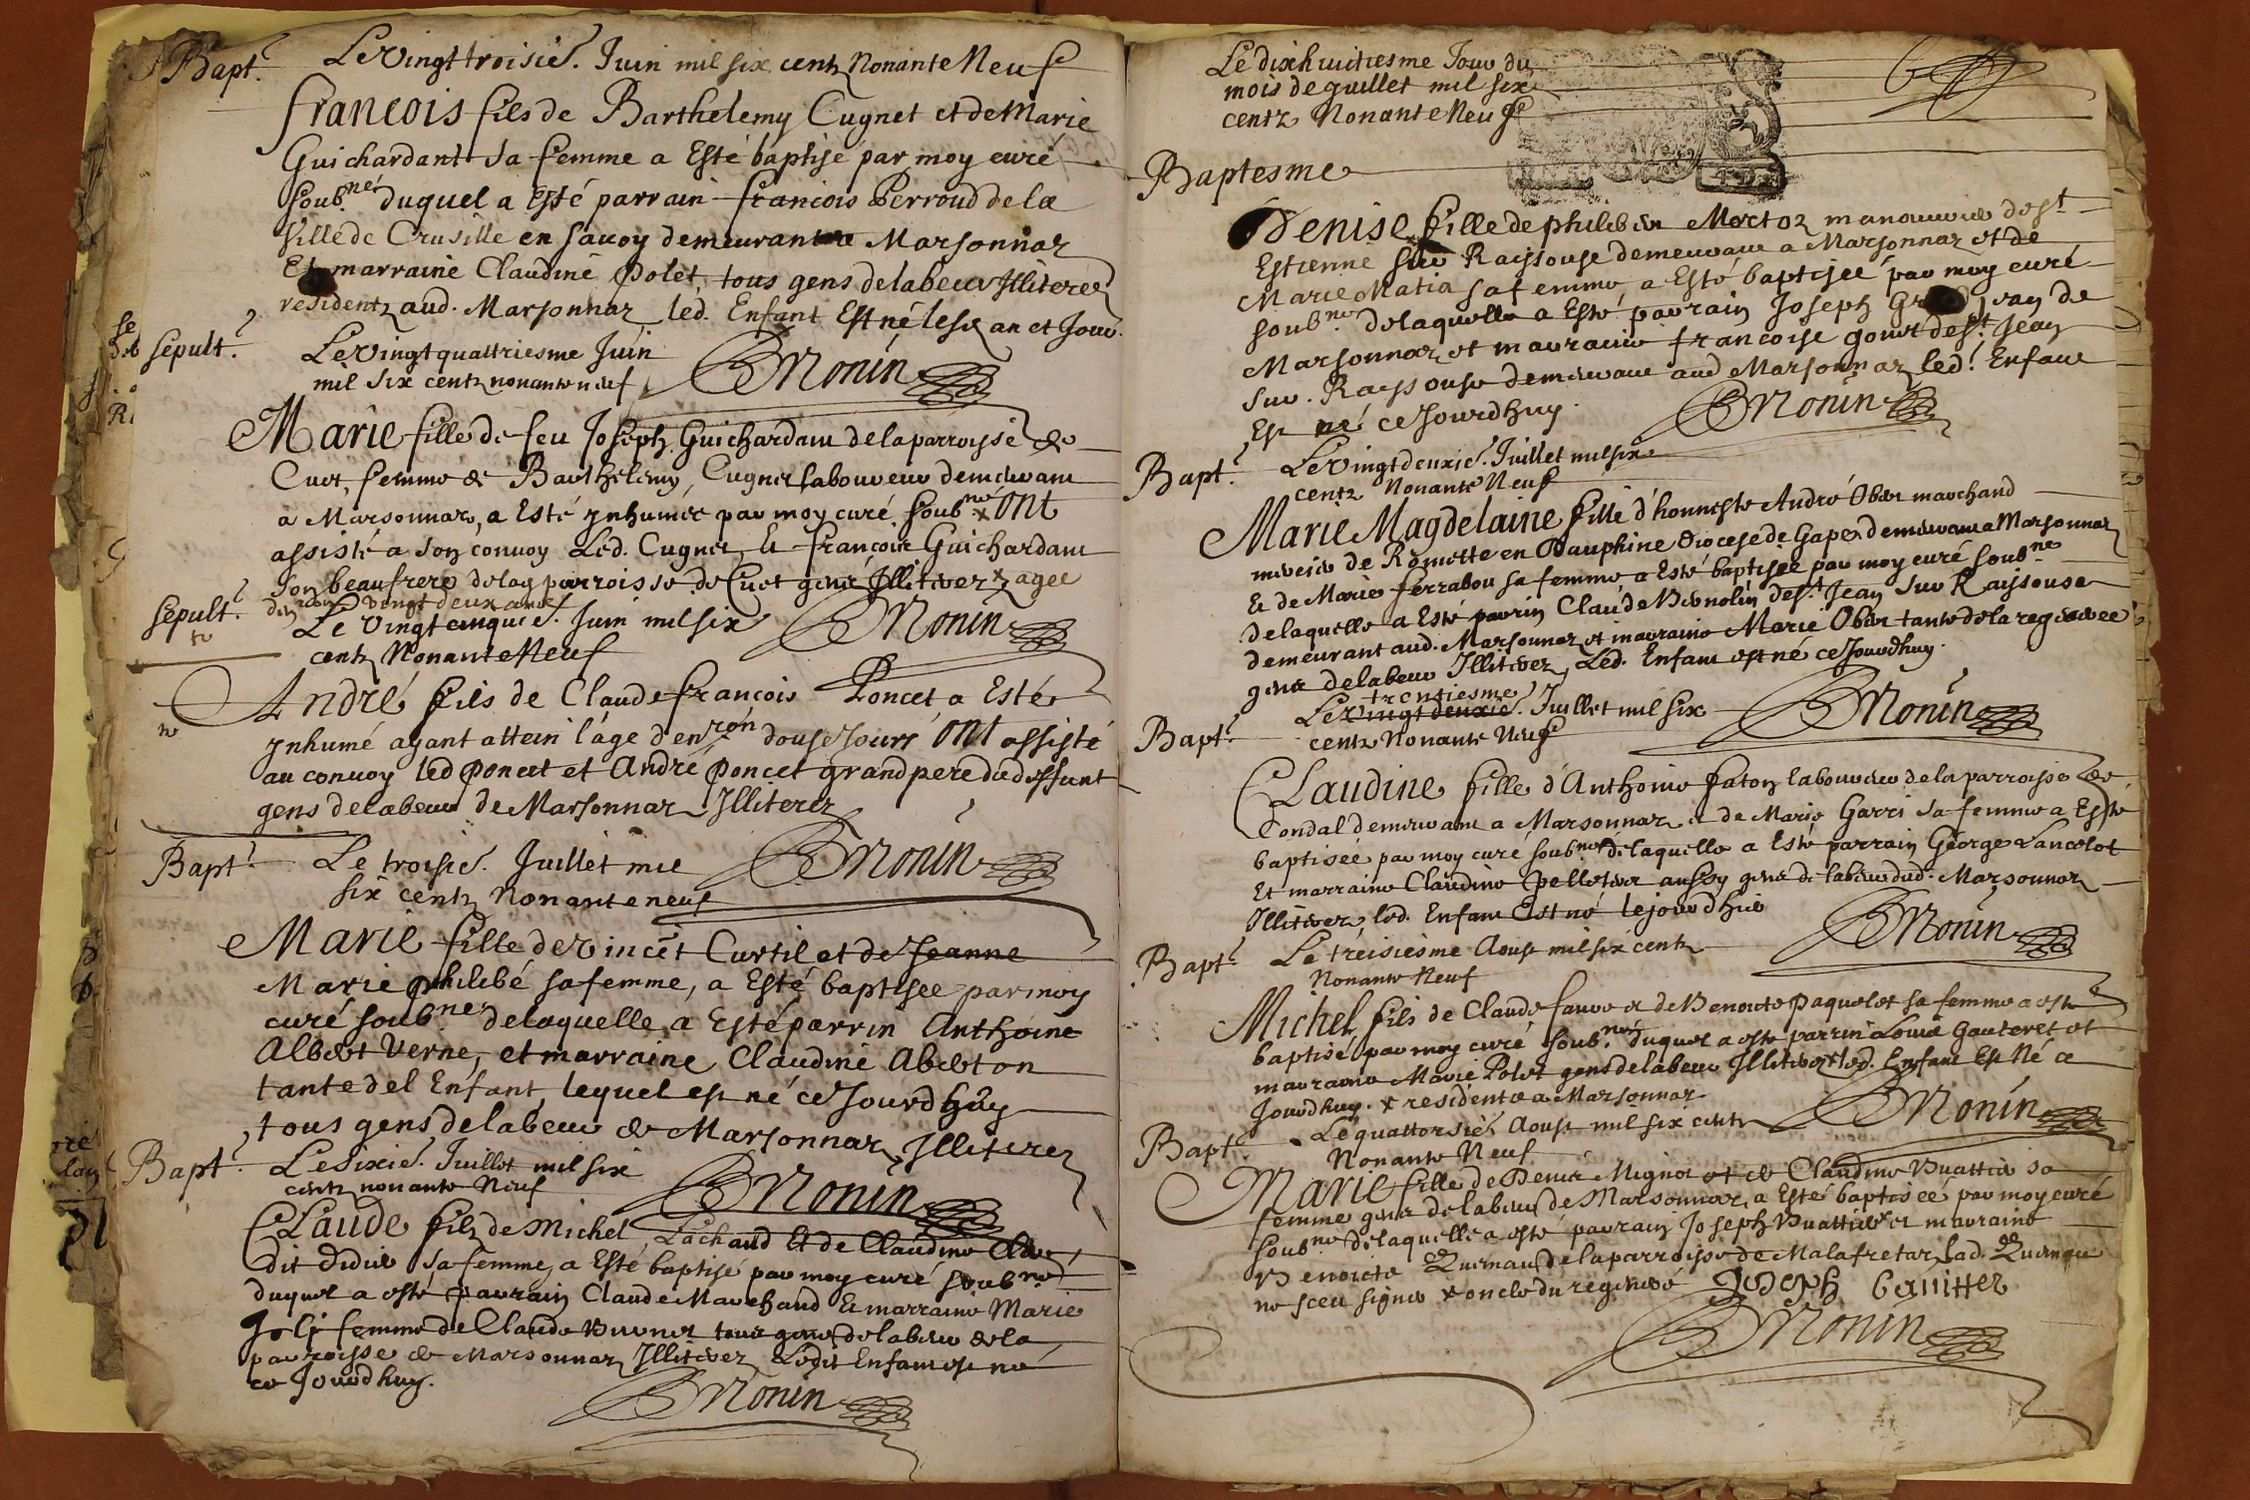 Bapt.
Le Vingt troisie. Juin mil six centz Nonante Neuf
francois fils de Barthelemy Cugnet et de Marie
Guichardant sa femme a Esté baptisé par moy curé
soub.né duquel a Esté parrain francois Perroud de la
Ville de Crusille en savoy demeurant a Marsonnaz
Et marraine Claudine Polet, tous gens delabeur Illiterez
residentz aud. Marsonnaz led. Enfant Est né lesd. an et Jour.
Sepult.
Le Vingt quattriesme Juin
mil six centz nonante neuf
BMonin
Marie fille de feu Joseph Guichardant de la parroisse de
Cuet, femme de Barthelemy Cugnet laboureur demeurant
a Marsonnaz, a Esté ynhumée par moy curé soub.né x ont
assisté a son convoy Led. Cugnet, Et francois Guichardant
son beaufrere de lad. parroisse de Cuet gens Illiterez x agée
d'environ vingt deux ans
Sepult.
Le Vingt cinquie. Juin mil six
centz Nonante Neuf
BMonin
André fils de Claude francois Poncet a Esté
ynhumé ayant attein l'age d'environ douse Jours ont assisté
au convoy led Poncet et André Poncet grand pere du deffunt
gens delabeur de Marsonnaz Illiterez
Bapt.
Le troisie. Juillet mil
six centz Nonante neuf
BMonin
Marie fille de Vincēt Curtil et de Jeanne
Marie Philibé sa femme, a Esté baptisée par moy
curé soub.né delaquelle a Esté parrin Anthoine
Albert Verne, et marraine Claudine Aberton
tante del Enfant, lequel est né ce Jourdhuy
tous gens delabeur de Marsonnaz Illiterez
Bapt.
Le Sixie. Juillet mil six
centz nonante Neuf
BMonin
Claude fils de Michel Lachaud Et de Claudine
dit didier sa femme, a Esté baptisé par moy curé soub.né
duquel a esté parrain Claude Marchand Et marraine Marie
Joly femme de Claude Buvnet tous gens delabeur de la
parroisse de Marsonnaz Illiterez Ledit Enfant est né
ce Jourdhuy.
BMonin
Le dixhuitiesme Jour du
mois de Juillet mil six
centz Nonante Neuf
Baptesme
Denise fille de philibert Mortoz manouvrier de st
Estienne sur Rayssouse demeurant a Marsonnaz et de
Marie Matia sa femme a Esté baptisée par moy curé
soub.né delaquelle a Esté parrain Joseph
Marsonnaz et marraine francoise gouet de st. Jean
sur. Rayssouse demeurant aud Marsonnaz led. Enfant
Est né ce Jourdhuy.
BMonin
Bapt.
Le Vingt deuxie. Juillet mil six
centz Nonante Neuf
Marie Magdelaine fille d'honneste André Ober marchand
mercier de Romette en Dauphine Diocese de Gapt demeurant a Marsonnaz
Et de Marie ferrabou sa femme a Esté baptisée par moy curé soub.né
delaquelle a Esté parrin Claude Brenolin de st. Jean sur Rayssouse
demeurant aud. Marsonnaz et marraine Marie Ober tante de la regenerée
gens delabeur Illiterez, Led. Enfant est né ce Jourdhuy.
Bapt.
trentiesme
Le Vingt deuxie. Juillet mil six
centz Nonante Neuf
BMonin
Claudine fille d'Anthoine faton laboureur de la parroisse de
Condal demeurant a Marsonnaz et de Marie Garri sa femme a Esté
baptisée par moy curé soub.né delaquelle a Esté parrain George Lancelot
Et marraine Claudine Pelletier aussy gens delabeur dud. Marsonnaz
Illiterez, led. Enfant Est né lejourdhui
BMonin
Bapt.
Le treisiesme Aoust mil six centz
Nonante Neuf
Michel fils de Claude faure et de Benoite Paquelet sa femme a esté
baptisé par moy curé soub.né duquel a esté parrin Louis Gauteret et
marraine Marie Polet gens delabeur Illiterez x led. Enfant Est Né ce
Jourdhuy. x residentz a Marsonnaz
BMonin
Bapt.
Le quattorsie. Aoust mil six centz
Nonante Neuf
Marie fille de Denis Mignot et de Claudine Buattier sa
femme gens delabeur de Marsonnaz, a Esté baptisée par moy curé
soub.né delaquelle a esté parrain Joseph Buattier x et marraine
Benoicte Quernau de la parroisse de Malafretaz lad. Quernau
ne sceu signer x oncle du regeneré
BMonin